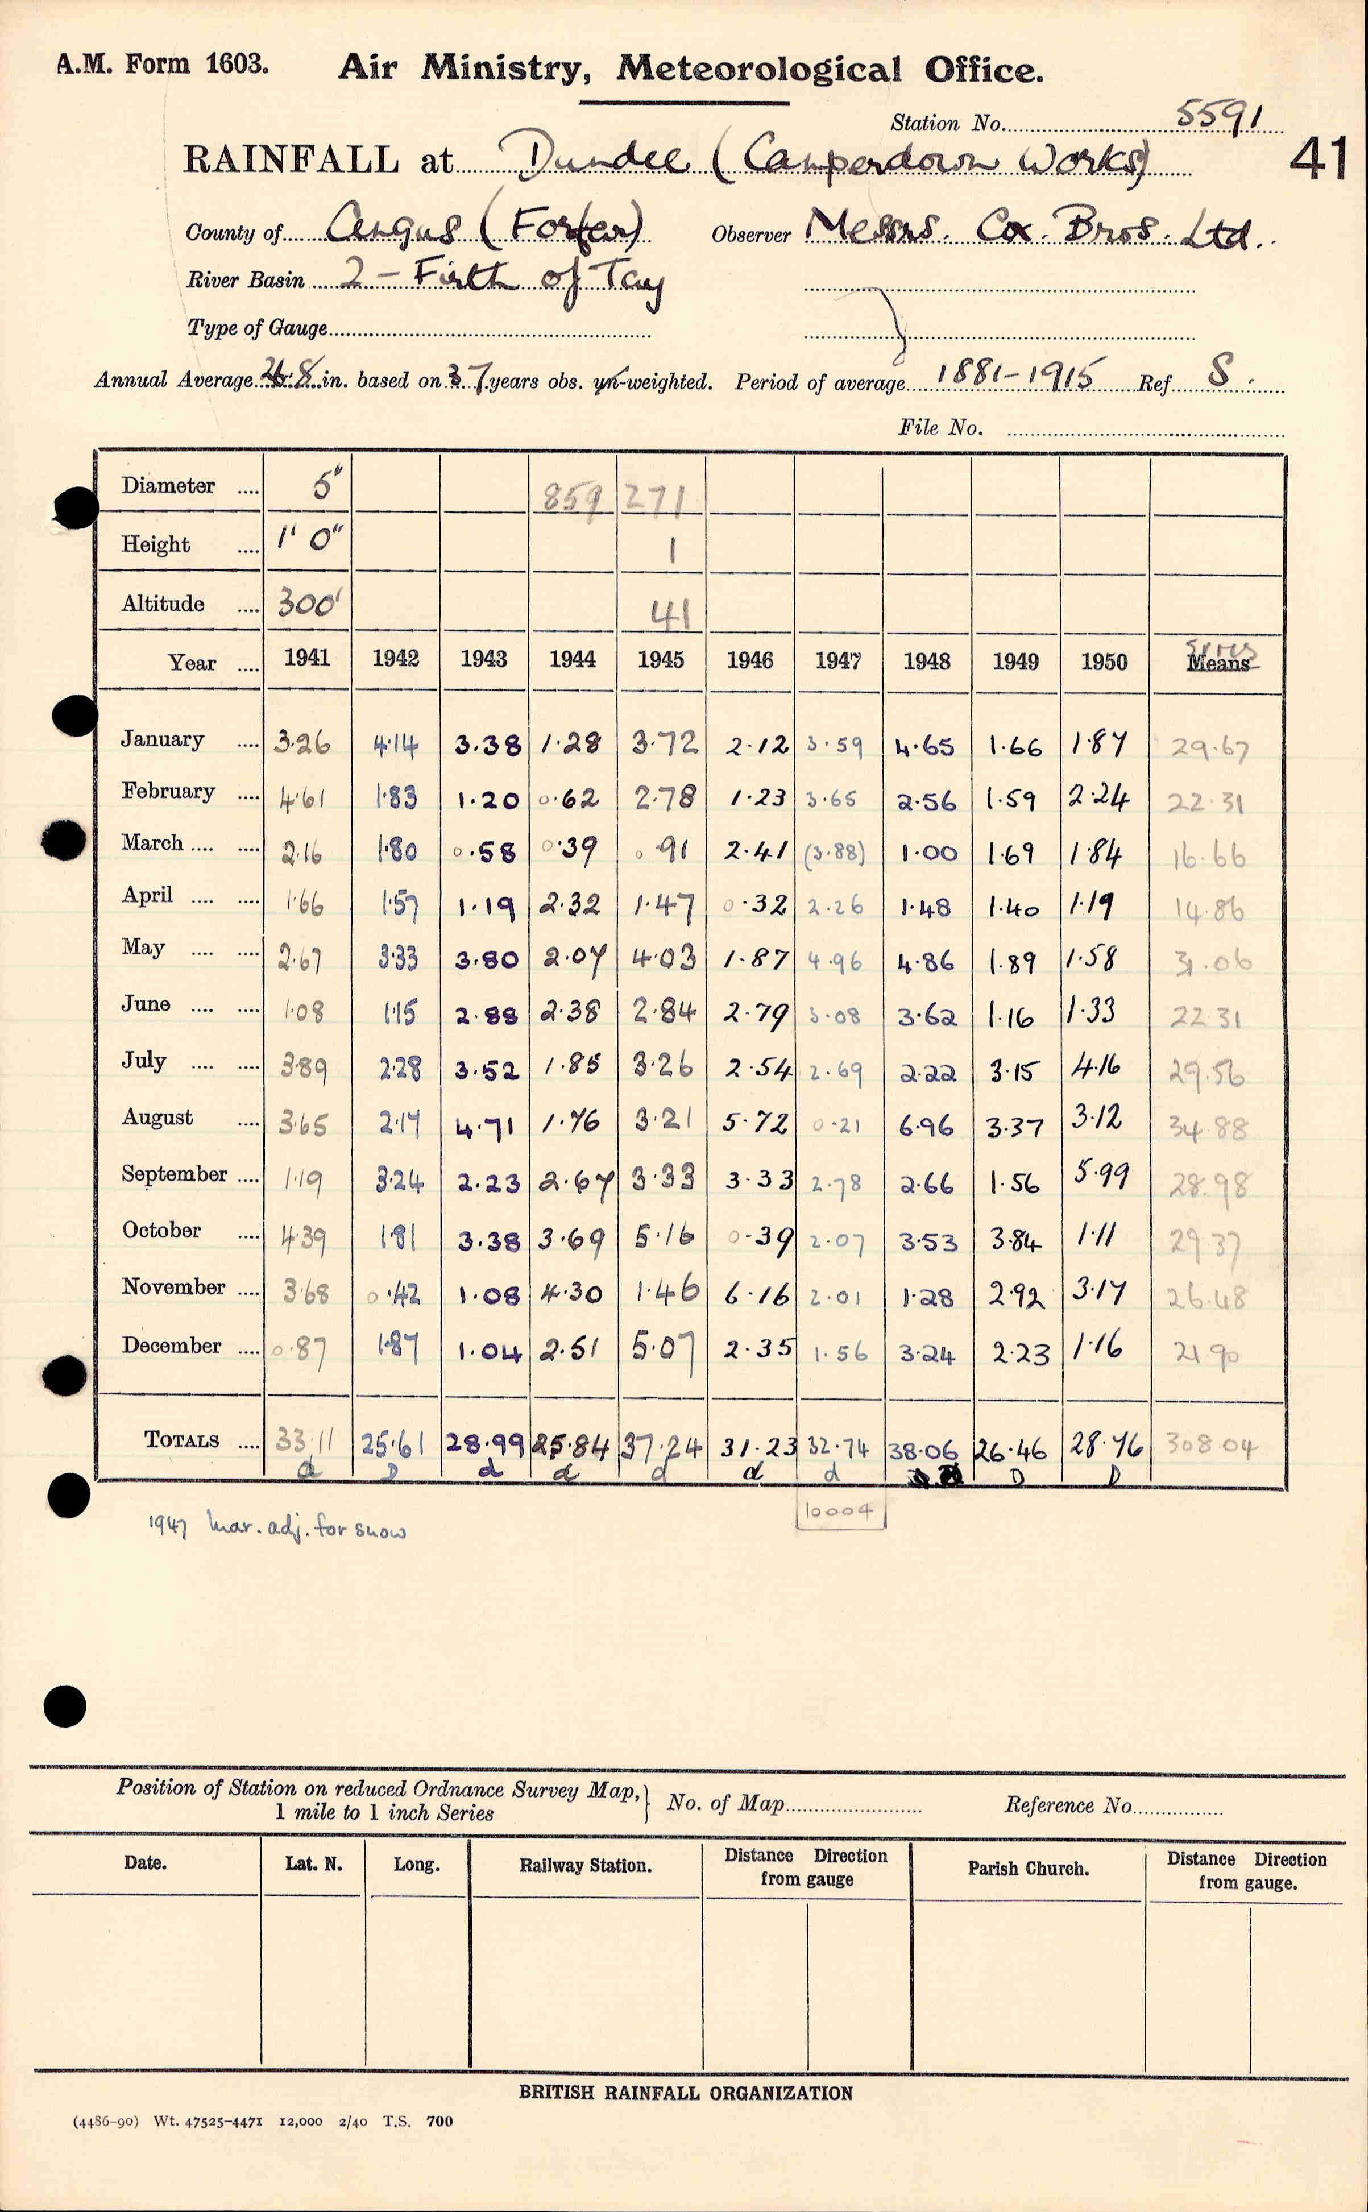 A.M. Form 1603. Air Ministry, Meteorological Office.
Station No. 5591
41
RAINFALL at Dundee (Camperdown Works)
County of Angus (Forfar) Observer Messrs. Cox Bros. Ltd.
River Basin 2 - Firth of Tay
Type of Gauge
Annual Average in. based on 37 years obs. un-weighted. Period of average 1881-1915 Ref. S.
File No.
Diameter .... 5" 859 271
Height .... 1' 0" 1
Altitude .... 300' 41
Year .... 1941 1942 1943 1944 1945 1946 1947 1948 1949 1950 Means
January .... 3.26 4.14 3.38 1.28 3.72 2.12 3.59 4.65 1.66 1.87 29.67
February .... 4.61 1.83 1.20 0.62 2.78 1.23 3.65 2.56 1.59 2.24 22.31
March .... .... 2.16 1.80 0.58 0.39 0.91 2.41 (3.88) 1.00 1.69 1.84 16.66
April .... .... 1.66 1.57 1.19 2.32 1.47 0.32 2.26 1.48 1.40 1.19 14.86
May .... .... 2.67 3.33 3.80 2.07 4.03 1.87 4.96 4.86 1.89 1.58 31.06
June .... .... 1.08 1.15 2.88 2.38 2.84 2.79 3.08 3.62 1.16 1.33 22.31
July .... .... 3.89 2.28 3.52 1.85 3.26 2.54 2.69 2.22 3.15 4.16 29.56
August .... 3.65 2.17 4.71 1.76 3.21 5.72 0.21 6.96 3.37 3.12 34.88
September .... 1.19 3.24 2.23 2.67 3.33 3.33 2.78 2.66 1.56 5.99 28.98
October .... 4.39 1.81 3.38 3.69 5.16 0.39 2.07 3.53 3.84 1.11 29.37
November .... 3.68 0.42 1.08 4.30 1.46 6.16 2.01 1.28 2.92 3.17 26.48
December .... 0.87 1.87 1.04 2.51 5.07 2.35 1.56 3.24 2.23 1.16 21.90
TOTALS .... 33.11 25.61 28.99 25.84 37.24 31.23 32.74 38.06 26.46 28.76 308.04
d D d d d d d D D
10004
1947 Mar. adj. for snow
Position of Station on reduced Ordnance Survey Map, } No. of Map Reference No.
1 mile to 1 inch Series
Date. Lat. N. Long. Railway Station. Distance Direction from gauge Parish Church. Distance Direction from gauge.
BRITISH RAINFALL ORGANIZATION
(4486-90) Wt. 47525-4471 12,000 2/40 T.S. 700